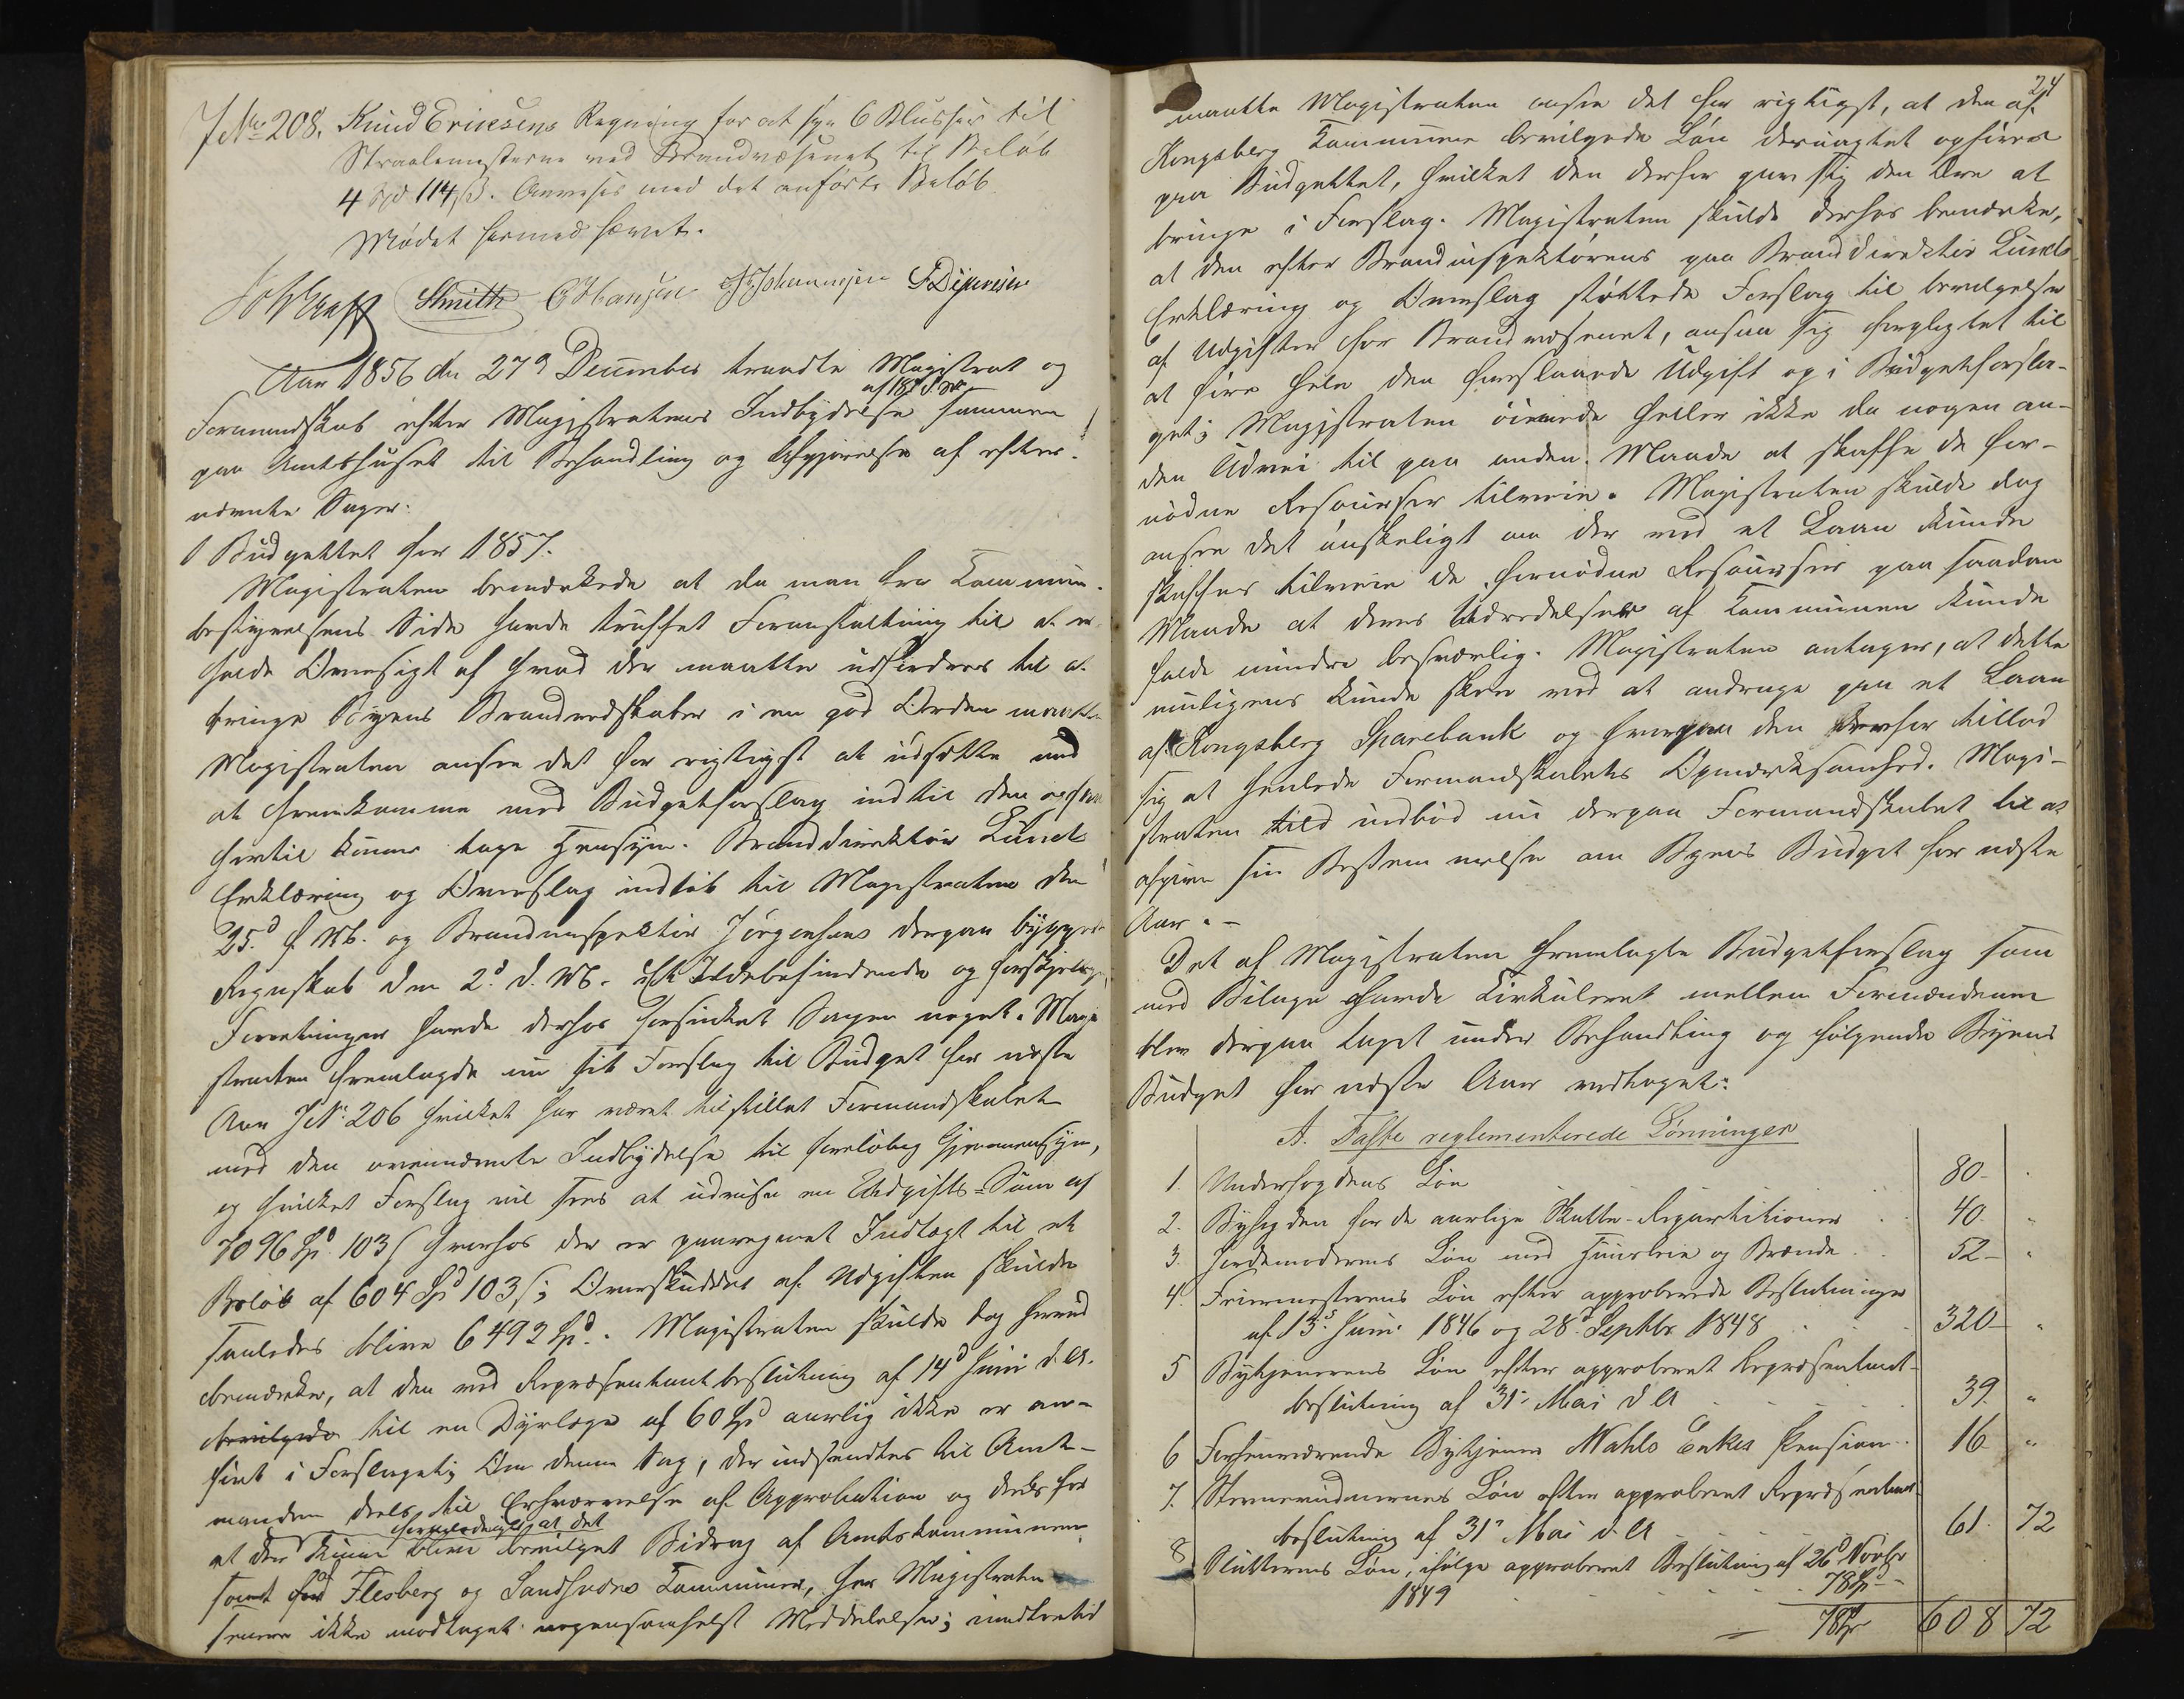 J.No 208. Knud Ericksens Regning for at sye 6 Blusser til
Straalemesterne ved Brandvæsenet til Beløb
4 Spd 114 ß. Anvises med det anførte Beløb.
Mødet hermed hævet.
Smith C Hansen Johannesen
Aar 1856 den 27d December traadte Magistrat og
Formandskab efter Magistratens Indbydelse af 18d d. M. sammen
paa Amtshuset til Behandling og Afgjørelse af efter-
nævnte Sager:
1 Budgettet for 1857.
Magistraten bemærkede at da man fra Commune-
bestyrelsens Side havde truffet Foranstaltning til at er-
holde Oversigt af hvad der maatte udfordres til at
bringe Byens Brandredskaber i en god Orden maatte
Magistraten ansee det for rigtigst at udsætte med
at fremkomme med Budgetforslag indtil den
hertil kunne tage Hensyn. Branddirektør Lunds
Erklæring og Overslag indløb til Magistraten den
25d f. Mt. og Brandinspektør Jørgensens derpaa byggede
Regnskab den 2d d. Mt. Ildebefindende og forskjellige
Forretninger havde derhos forsinket Sagen noget. Magi-
straten fremlagde nu sit Forslag til Budget for næste
Aar JN: 206 hvilket har været tilstillet Formandskabet
med den ovennævnte Indbydelse til foreløbig Gjennemsyn,
og hvilket Forslag vil sees at udvise en Udgifts-Sum af
7096 Spd 103 ß hvorhos der er paaregnet Indtægt til et
Beløb af 604 Spd 103 ß; Overskuddet af Udgiften skulde
saaledes blive 6492 Spd. Magistraten skulde dog herved
bemærke, at den ved Repræsentantbeslutning af 14d Juni d. A.
bevilgede til en Dyrlæge af 60 Spd aarlig ikke er an-
ført i Forslaget; Om denne Sag, der indsendtes til Amt-
manden deels til Erhvervelse af Approbation og deels for
at der kunne blive foranlediget at det bevilget Bidrag af Amtskommunen
samt fra Flesberg og Sandsværs Communer, har Magistraten
senere ikke modtaget nogensomhelst Meddelelse; imidlertid
24
maatte Magistraten ansee det for rigtigst, at den af
Kongsberg Commune bevilgede Løn desuagtet opføres
paa Budgettet, hvilket den derfor gav sig den Ære at
bringe i Forslag. Magistraten skulde derhos bemærke,
at den efter Brandinspektørens paa Branddirektør Lunds
Erklæring og Overslag støttede Forslag til bevilgelse
af Udgifter for Brandvæsenet, ansaa sig forpligtet til
at føre hele den foreslaaede Udgift op i Budgetforsla-
get; Magistraten øinede heller ikke da nogen an-
den Udvei til paa anden Maade at skaffe de for-
nødne Resourser tilveie. Magistraten skulde dog
ansee det ønskeligt om der ved et Laan kunde
skaffes tilveie de fornødne Resourser paa saadan
Maade at deres Udredelse af Communen kunde
falde mindre besværlig. Magistraten antager, at dette
muligens kunde skee ved at andrage paa et Laan
af Kongsberg Sparebank og hvorpaa den derfor tillod
sig at henlede Formandskabets Opmærksomhed. Magi-
straten tild indbød nu derpaa Formandskabet til at
afgive sin Bestemmelse om Byens Budget for næste
Aar. -
Det af Magistraten fremlagte Budgetforslag som
med Bilage havde Cirkuleret mellem Formændene
blev derpaa taget under Behandling og følgende Byens
Budget for næste Aar vedtaget:
A. Faste reglementerede Lønninger
1. Underfogdens Løn 80-
2. Byfogden for de aarlige Skatte-Repartitioner 40 "
3. Jordemoderens Løn med Huusleie og Brænde 52- "
4. Feiermesterens Løn efter approberede Beslutninger
af 13d Juni 1846 og 28d Septbr 1848 320 "
5 Bytjenerens Løn efter approberet Repræsentant-
beslutning af 31d Mai d A 39. "
6 Forhenværende Bytjener Mahls Enkes Pension 16 "
7. Løn efter approberet Repræsentant-
beslutning af 31d Mai d. A 61. 72
8 Slutterens Løn, ifølge approberet Beslutning af 26d Novbr
1849 78 Sp -
78 Sp 608 72